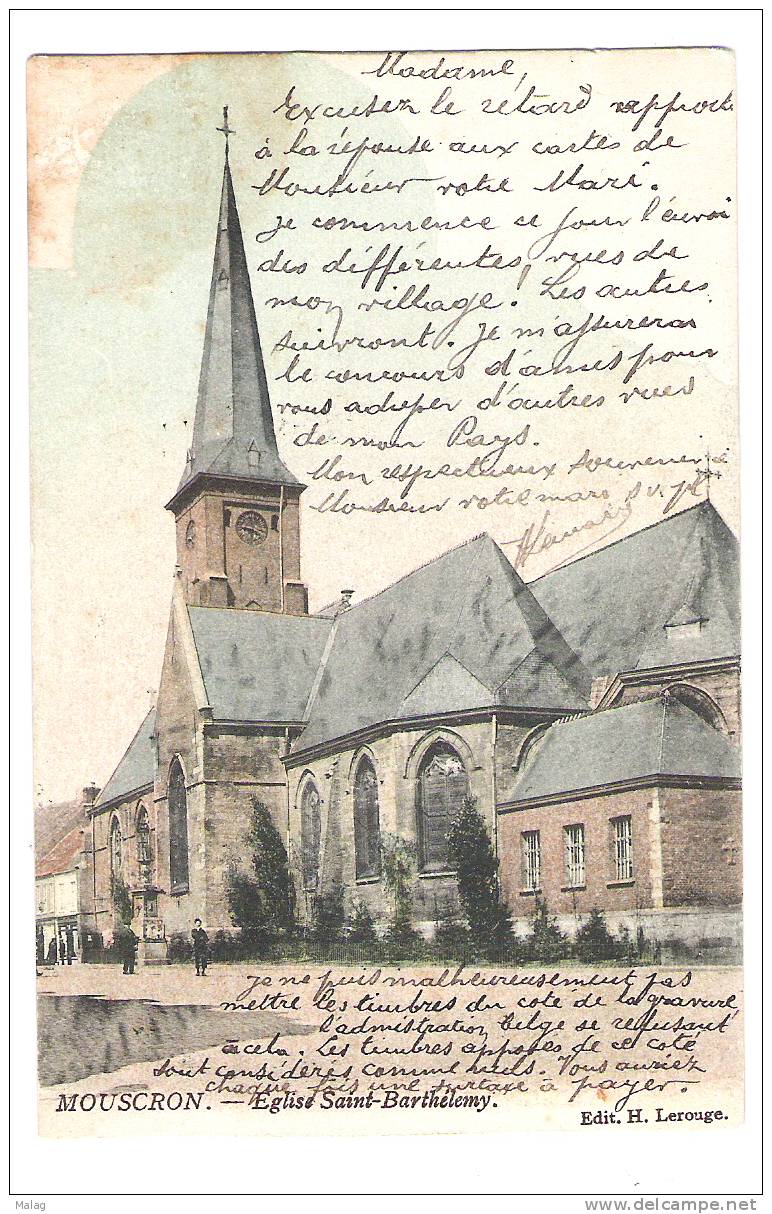 Madame,
Excusez le retard apporté
à la réponse aux cartes de
Monsieur votre Mari.
Je commence ce jour l'envoi
des différentes vues de
mon village! Les autres
suivront. Je m'assurerai
le concours d'amis pour
vous adresser d'autres vues
de mon Pays.
Mon respectueux souvenir à
Monsieur votre mari s.v.pl
Je ne puis malheureusement pas
mettre les timbres du coté de la gravure,
l'admistration belge se refusant
à cela. Les timbres apposés de ce coté
sont considérés comme nuls. Vous auriez
chaque fois une surtaxe à payer.
MOUSCRON. — Eglise Saint-Barthélemy.
Edit. H. Lerouge.
Malag
©delcampe.net